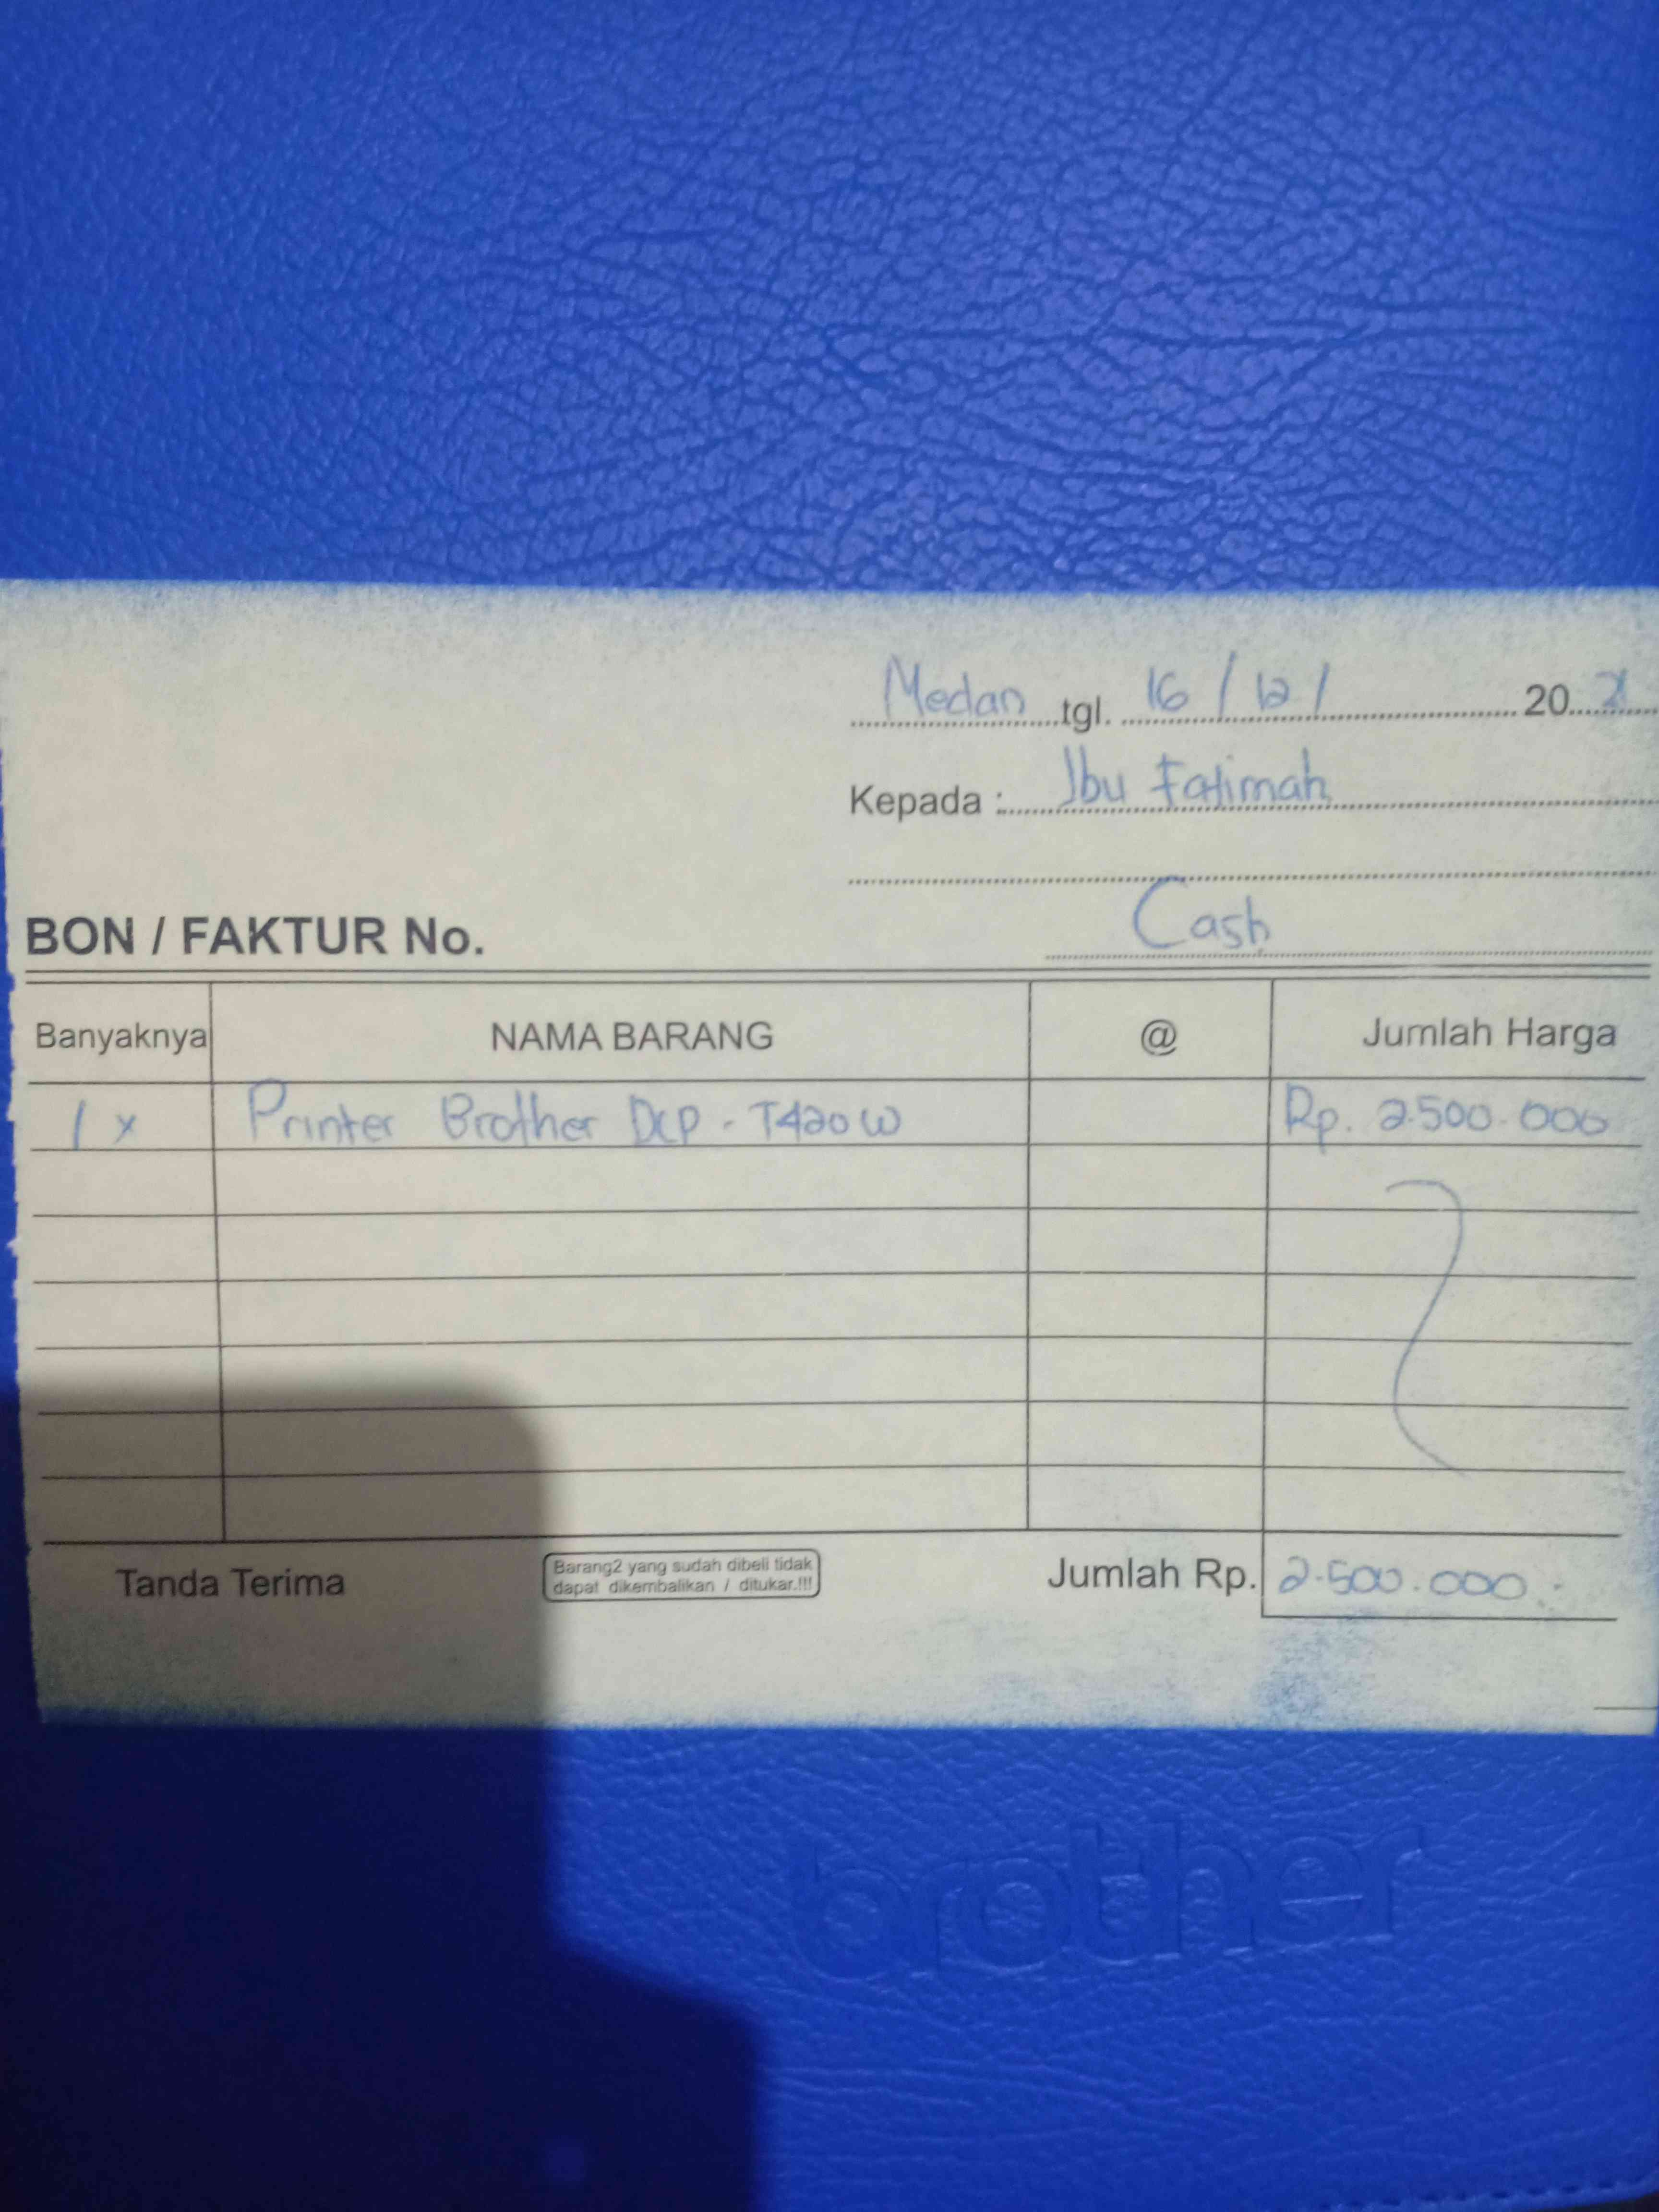 Medan tgl. 16 / 12 / 20
Kepada : Ibu Fatimah
Cash
BON / FAKTUR No.
Banyaknya NAMA BARANG @ Jumlah Harga
1 x Printer Brother DCP - T420W Rp. 2.500.000
Tanda Terima
Barang2 yang sudah dibeli tidak
dapat dikembalikan / ditukar.!!!
Jumlah Rp. 2.500.000
brother